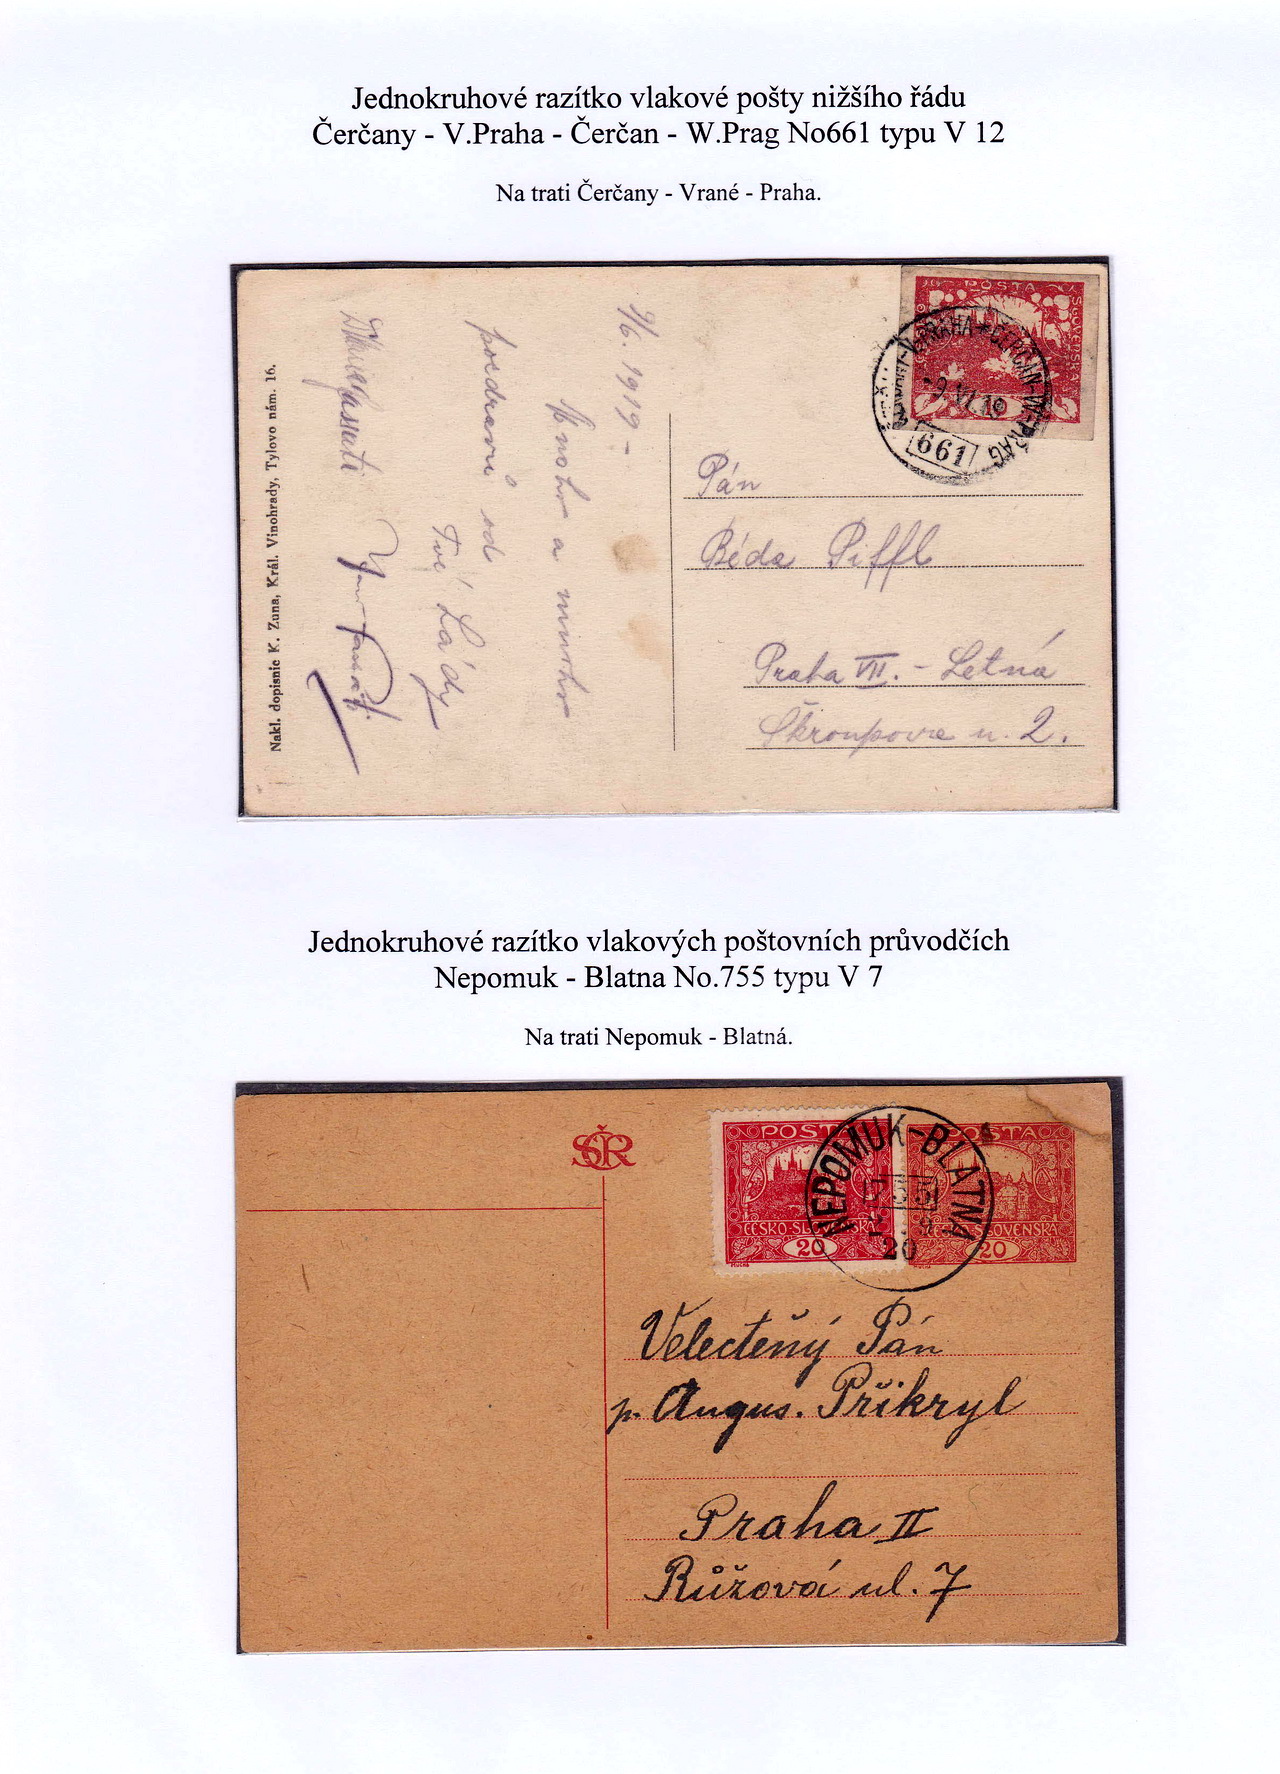 Jednokruhové razítko vlakové pošty nižšího řádu
Čerčany - V.Praha - Čerčan - W.Prag No661 typu V 12
Na trati Čerčany - Vrané - Praha.
POSTA
-9.VI.19
661
Nakl. dopisnic K. Zuna, Král. Vinohrady, Tylovo nám. 16.
9/6. 1919 -
Mnoho a mnoho
pozdravů od
Tvé Lády
Pán
Béda Piffl
Praha VII. - Letná
Škroupova u. 2.
Jednokruhové razítko vlakových poštovních průvodčích
Nepomuk - Blatna No.755 typu V 7
Na trati Nepomuk - Blatná.
ČSR
POSTA
ČESKO-SLOVENSKÁ
20
POSTA
ČESKO-SLOVENSKÁ
20
NEPOMUK-BLATNA
755
20
Velectěný Pán
p. Angus. Přikryl
Praha II
Růžová ul. 7